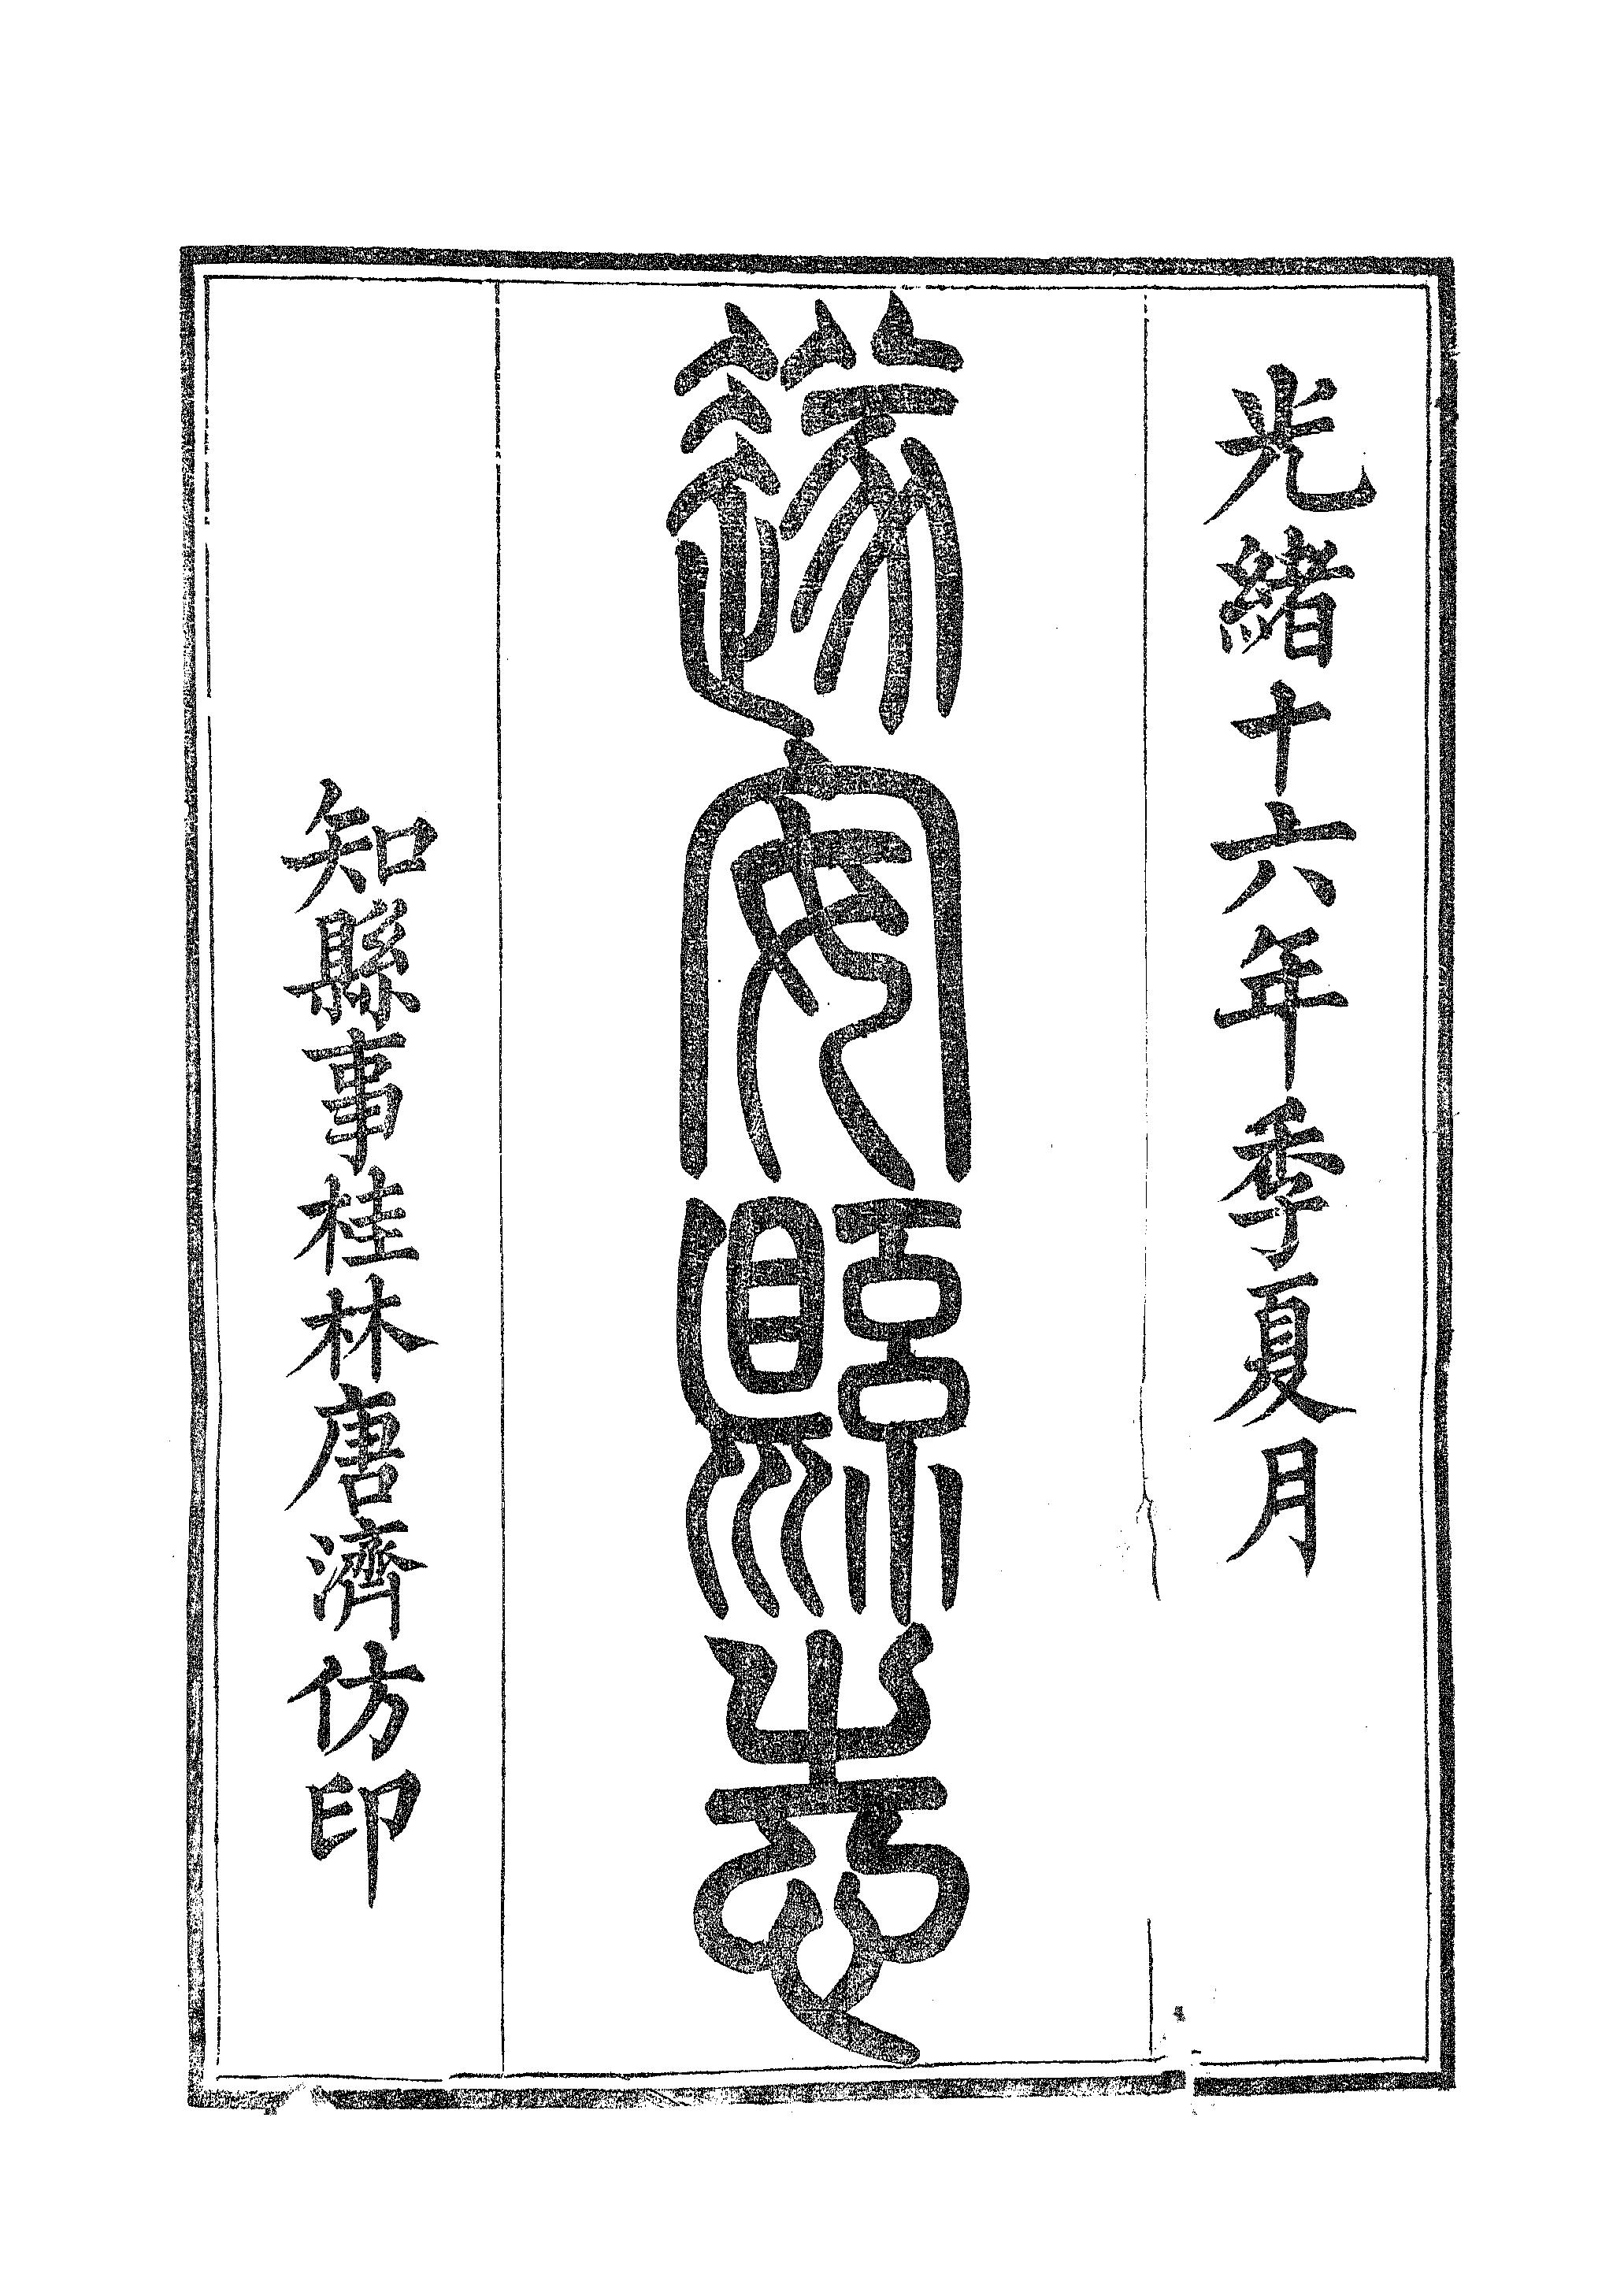 光緒十六年季夏月
遂安縣志
知縣事桂林唐濟仿印